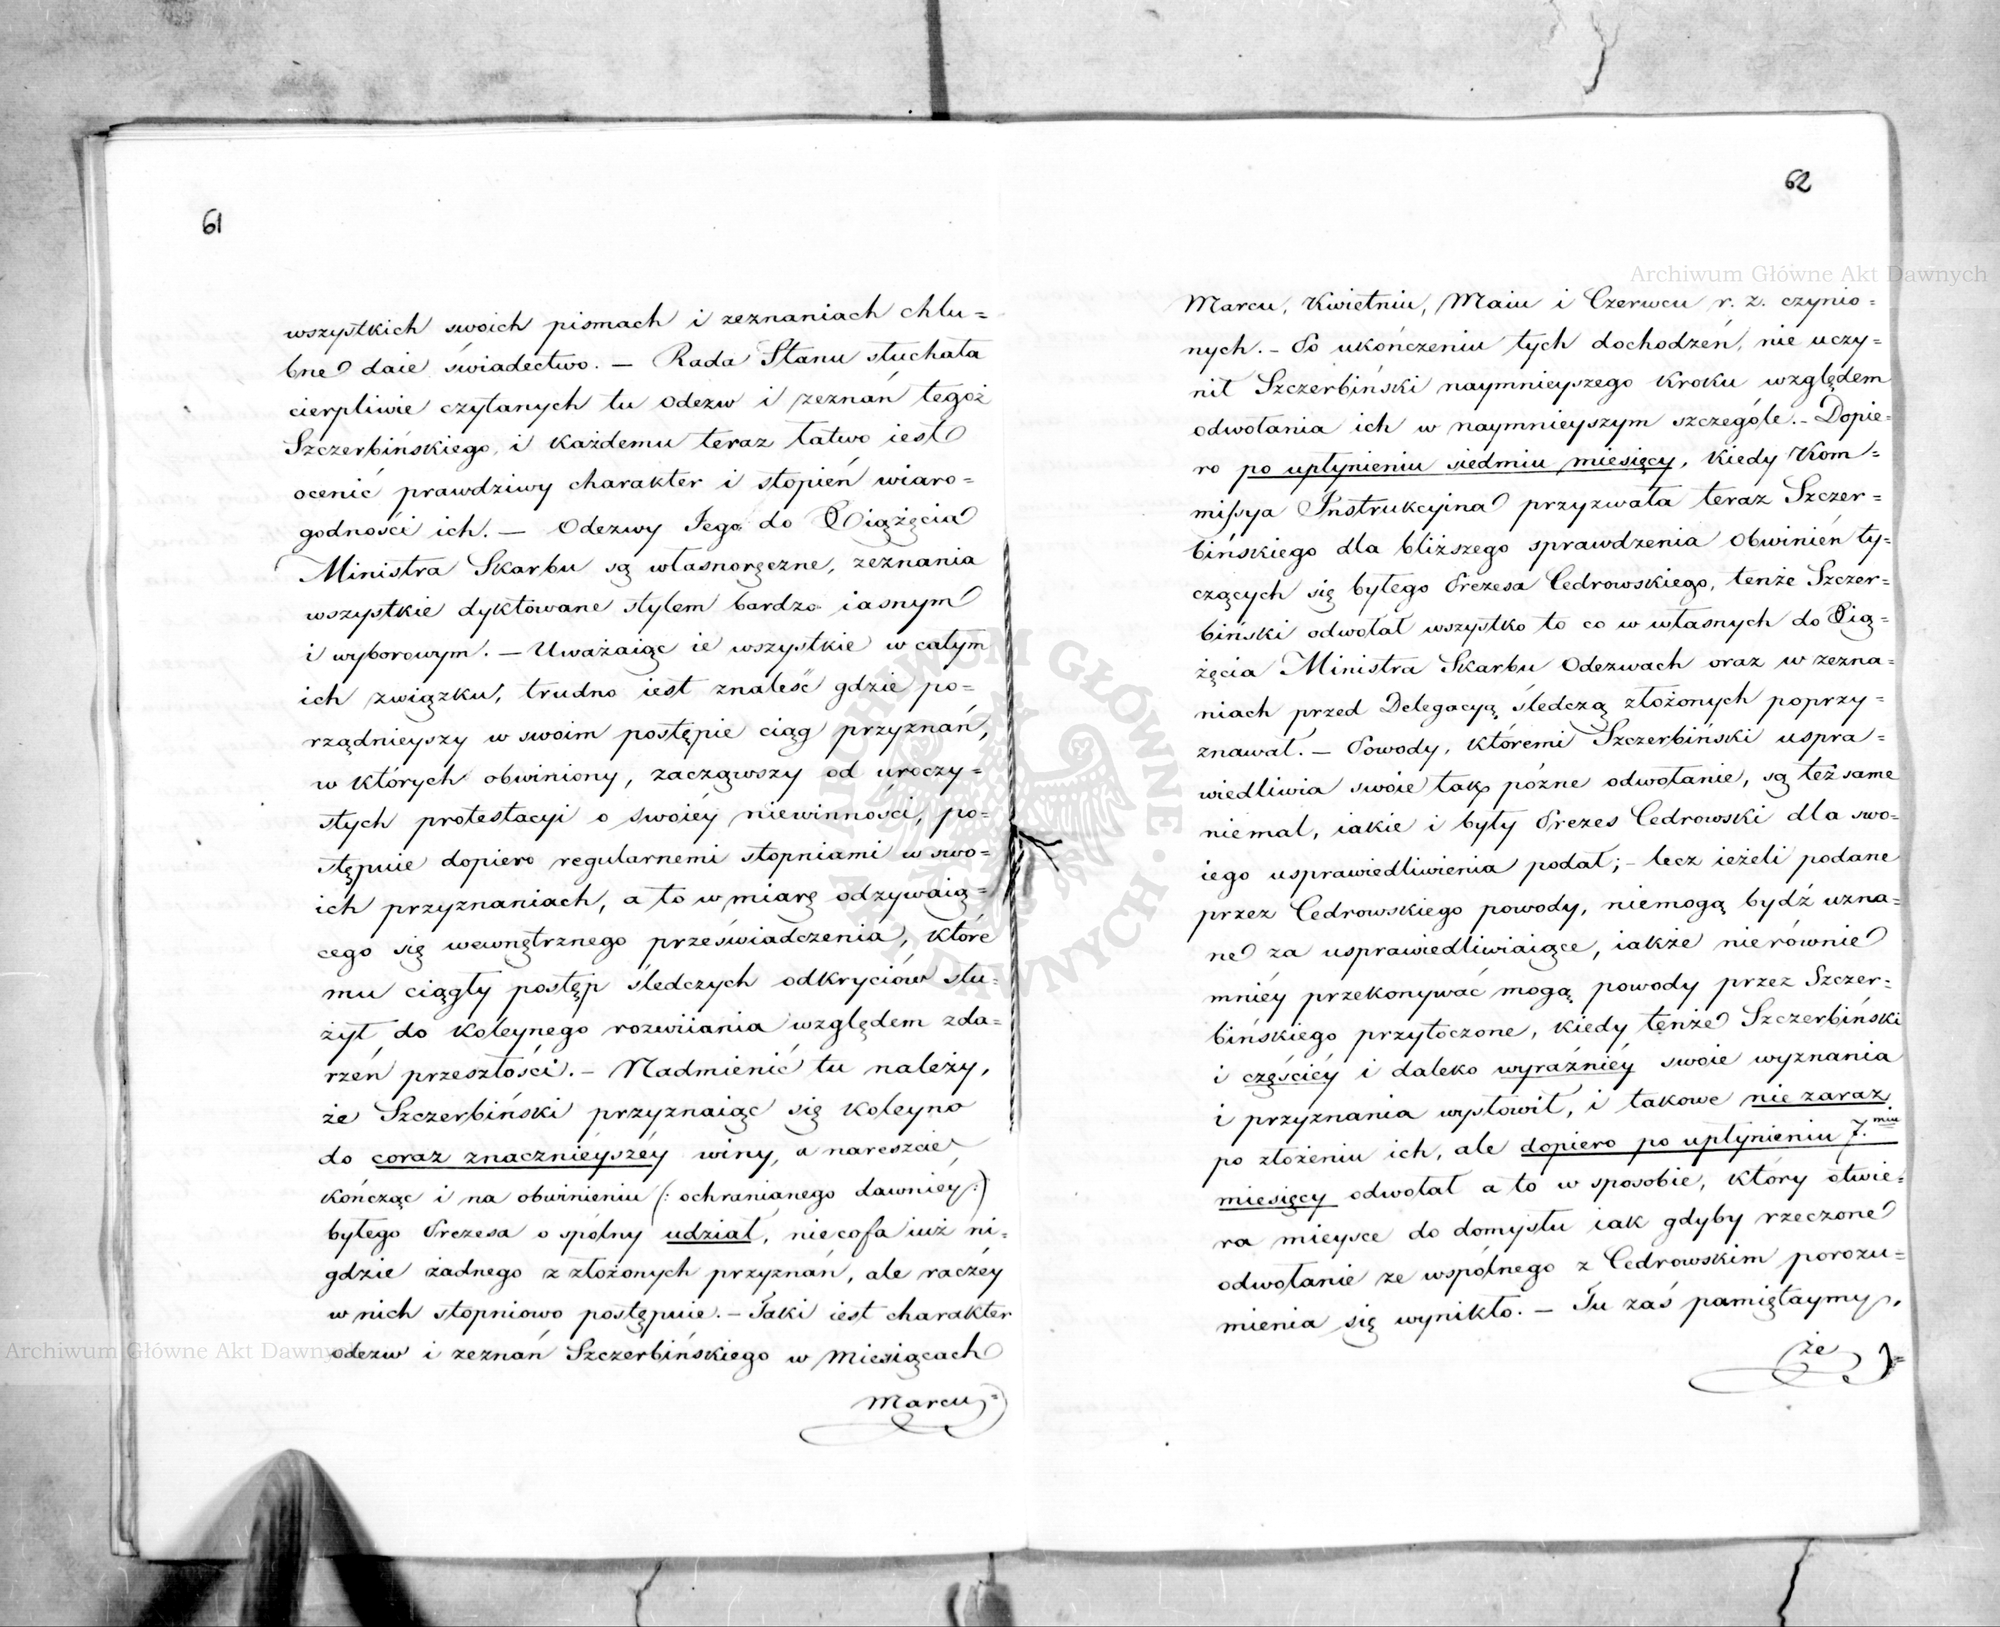 61
wszystkich swoich pismach i zeznaniach chlu=
bne daie świadectwo. — Rada Stanu słuchała
cierpliwie czytanych tu odezw i zeznań tegoż
Szczerbińskiego, i każdemu teraz łatwo iest
ocenić prawdziwy charakter i stopień wiaro=
godności ich. — Odezwy Jego do Xiążęcia
Ministra Skarbu są własnoręczne, zeznania
wszystkie dyktowane stylem bardzo iasnym
i wyborowym. — Uważaiąc ie wszystkie w całym
ich związku, trudno iest znaleść gdzie po=
rządnieyszy w swoim postępie ciąg przyznań,
w których obwiniony, zacząwszy od uroczy=
stych protestacyi o swoiéy niewinności, po=
stępuie dopiero regularnemi stopniami w swo=
ich przyznaniach, a to w miarę odzywaią=
cego się wewnętrznego przeświadczenia, które
mu ciągły postęp śledczych odkryciów słu=
żył do koleynego rozwiiania względem zda=
rzeń przeszłości. — Nadmienić tu należy,
że Szczerbiński przyznaiąc się koleyno
do coraz znacznieyszéy winy, a nareszcie,
kończąc i na obwinieniu (: ochranianego dawniéy :)
byłego Prezesa o spólny udział, nie cofa iuż ni=
gdzie żadnego z złożonych przyznań, ale raczéy
w nich stopniowo postępuie. — Taki iest charakter
odezw i zeznań Szczerbińskiego w Miesiącach
Marcu =
62
Marcu, Kwietniu, Maiu i Czerwcu r. z. czynio=
nych. — Po ukończeniu tych dochodzeń, nie uczy=
nił Szczerbiński naymnieyszego kroku względem
odwołania ich w naymnieyszym szczególe. — Dopie=
ro po upłynieniu siedmiu miesięcy, kiedy Kom=
missya Instrukcyina przyzwała teraz Szczer=
bińskiego dla bliższego sprawdzenia obwinień ty=
czących się byłego Prezesa Cedrowskiego, tenże Szczer=
biński odwołał wszystko to co w własnych do Xią=
żęcia Ministra Skarbu Odezwach oraz w zezna=
niach przed Delegacyą śledczą złożonych poprzy=
znawał. — Powody, któremi Szczerbiński uspra=
wiedliwia swoie tak późne odwołanie, są też same
niemal, iakie i były Prezes Cedrowski dla swo=
iego usprawiedliwienia podał; — lecz ieżeli podane
przez Cedrowskiego powody, niemogą bydź uzna=
ne za usprawiedliwiaiące, iakże nierównie
mniéy przekonywać mogą powody przez Szczer=
bińskiego przytoczone, kiedy tenże Szczerbiński
i częściéy i daleko wyraźniéy swoie wyznania
i przyznania wysłowił, i takowe nie zaraz
po złożeniu ich, ale dopiero po upłynieniu 7.miu
miesięcy odwołał a to w sposobie, który otwie=
ra mieysce do domysłu iak gdyby rzeczone
odwołanie ze wspólnego z Cedrowskim porozu=
mienia się wynikło. — Tu zaś pamiętaymy,
że =
Archiwum Główne Akt Dawnych
Archiwum Główne Akt Dawnych
ARCHIWUM GŁÓWNE AKT DAWNYCH